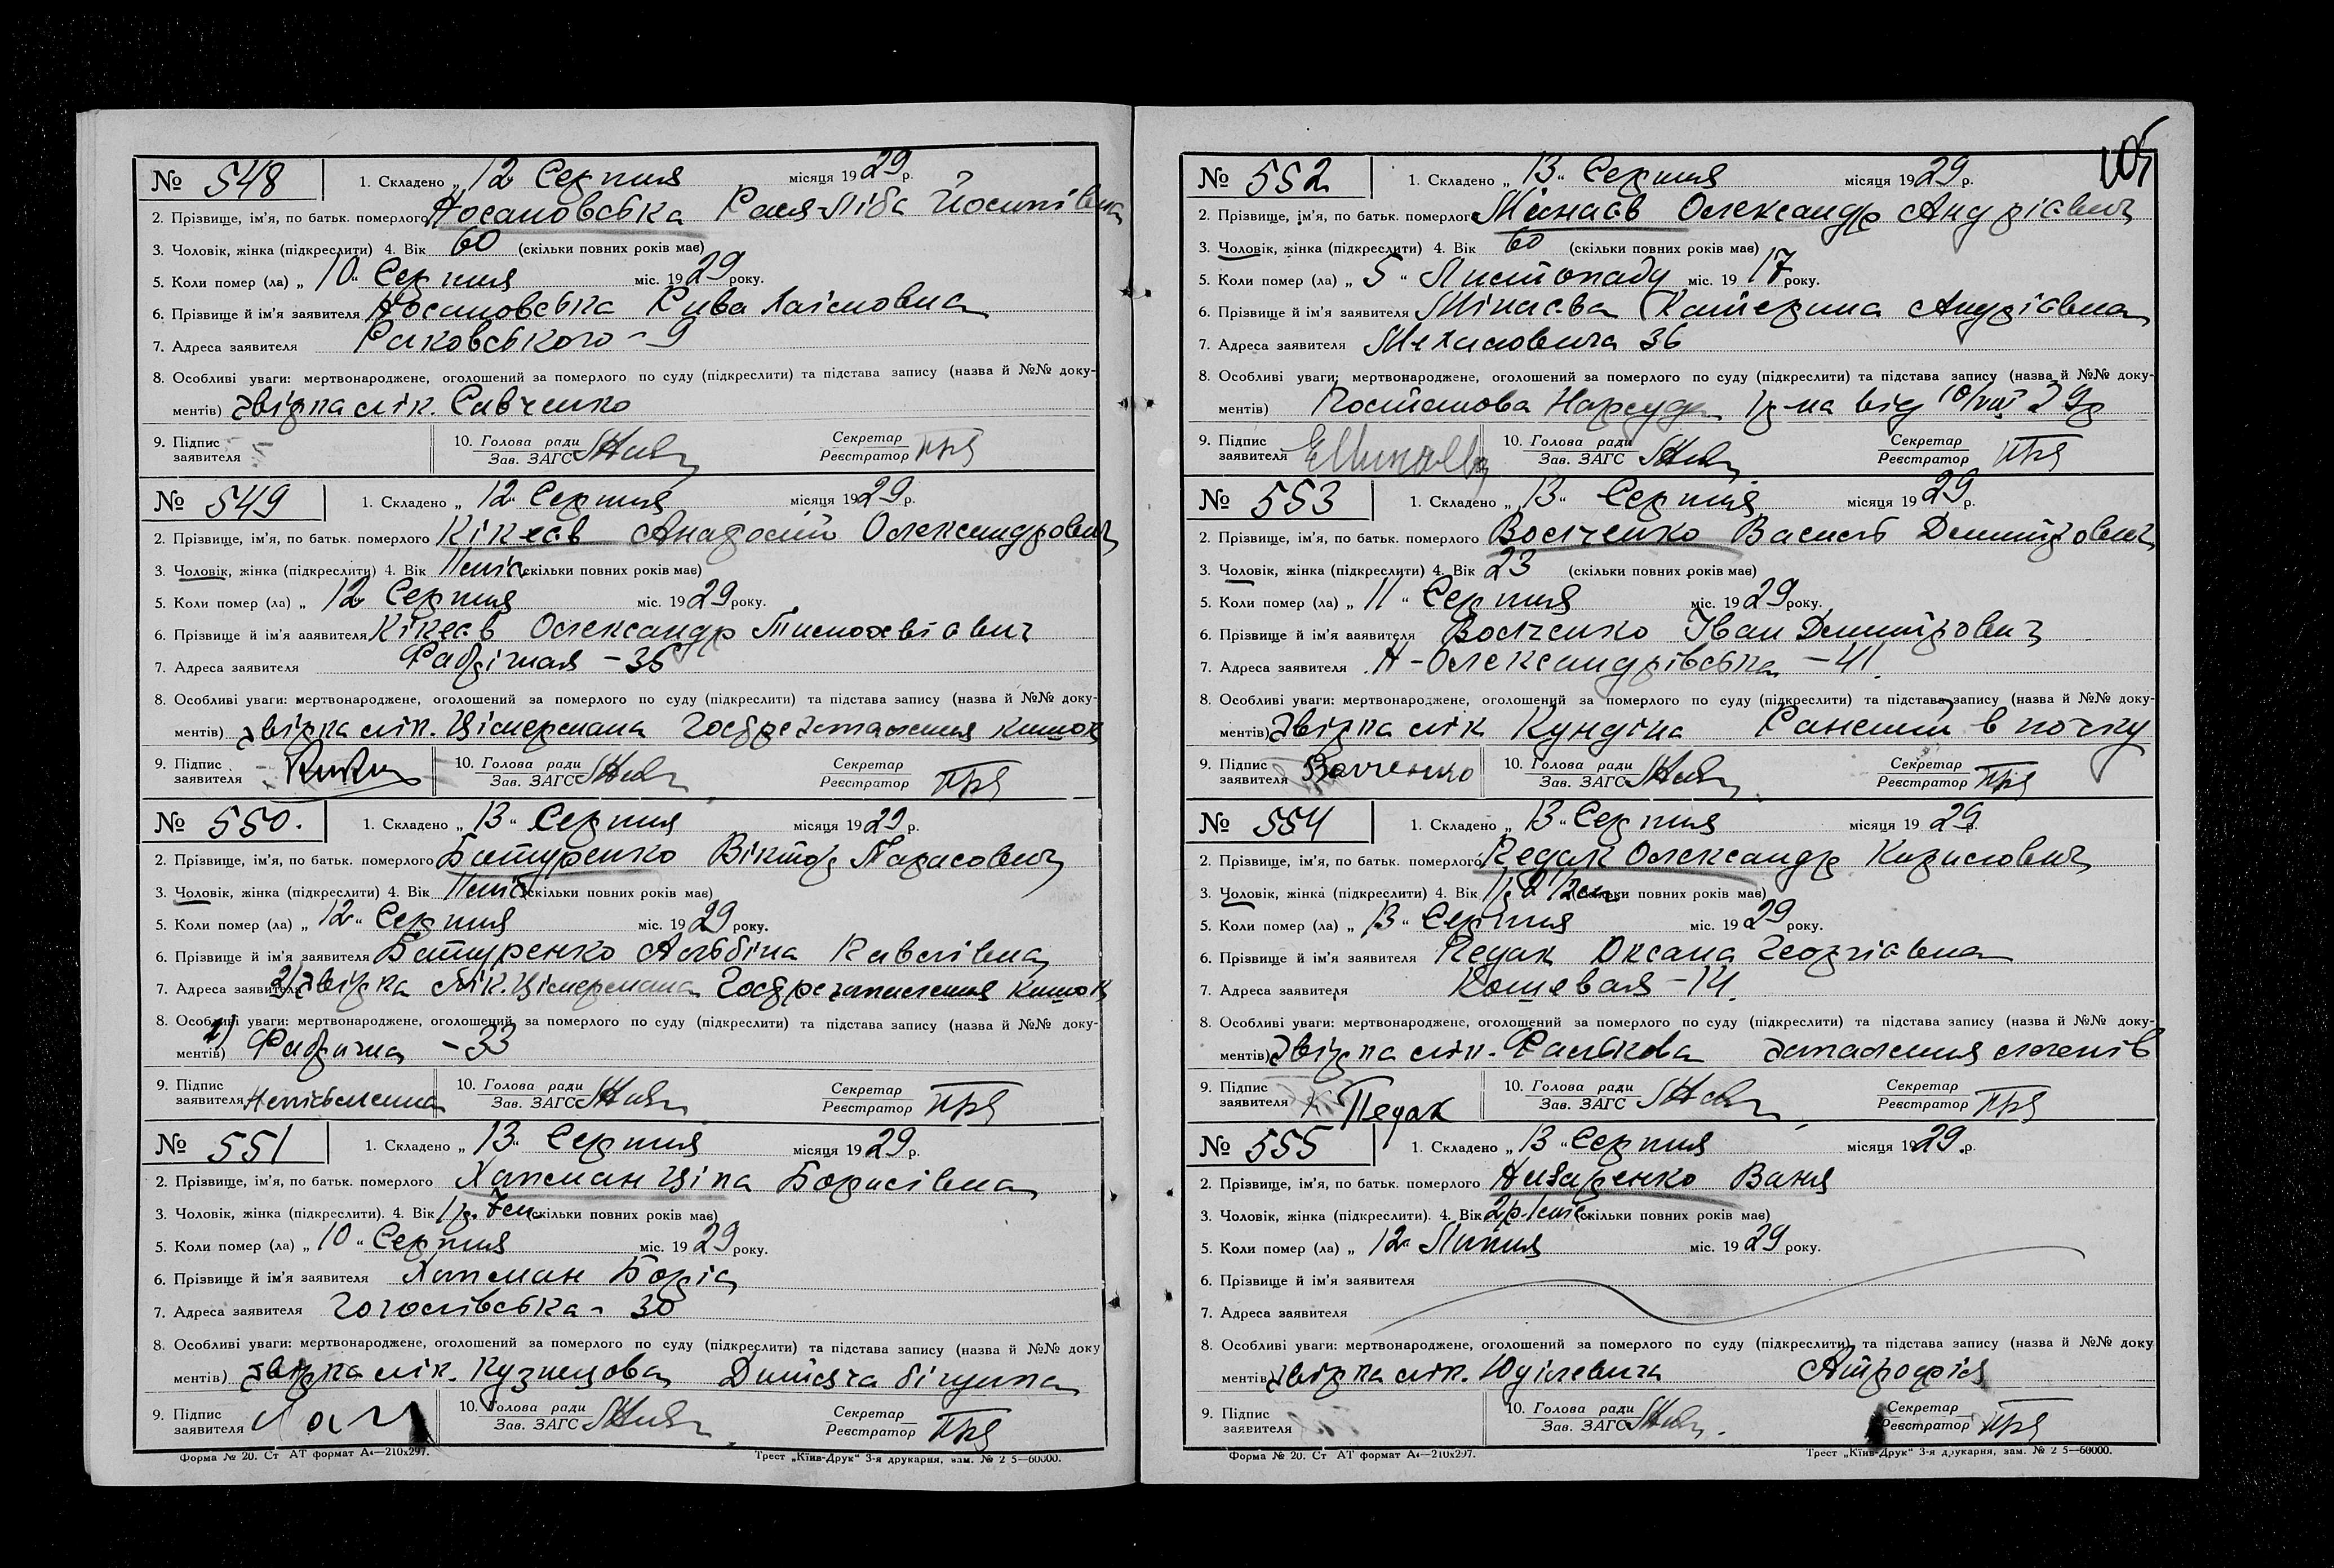 № 548 1. Складено „ 12 Серпня місяця 1929 р.
2. Прізвище, ім'я, по батьк. померлого Носановська Рася-Ліба Йосипівна
3. Чоловік, жінка (підкреслити) 4. Вік 60 (скільки повних років має)
5. Коли помер (ла) „ 10 “ Серпня міс. 1929 року.
6. Прізвище й ім'я заявителя Носановська Рива Хаімовна
7. Адреса заявителя Раковського - 9
8. Особливі уваги: мертвонароджене, оголошений за померлого по суду (підкреслити) та підстава запису (назва й №№ доку-
ментів) Звірка лік. Савченко
9. Підпис заявителя 10. Голова ради Зав. ЗАГС Секретар Реєстратор
№ 549 1. Складено „ 12 “ Серпня місяця 1929 р.
2. Прізвище, ім'я, по батьк. померлого Кікеєв Анатолій Олександрович
3. Чоловік, жінка (підкреслити) 4. Вік (скільки повних років має)
5. Коли помер (ла) „ 12 Серпня міс. 1929 року.
6. Прізвище й ім'я заявителя Кікеєв Олександр Тимофієвич
7. Адреса заявителя Фабрічная - 36
8. Особливі уваги: мертвонароджене, оголошений за померлого по суду (підкреслити) та підстава запису (назва й №№ доку-
ментів) звірка лік. Цімермана Гостре запалення кишок
9. Підпис заявителя 10. Голова ради Зав. ЗАГС Секретар Реєстратор
№ 550. 1. Складено „ 13 “ Серпня місяця 1929 р.
2. Прізвище, ім'я, по батьк. померлого Батуренко Віктор Тарасович
3. Чоловік, жінка (підкреслити) 4. Вік (скільки повних років має)
5. Коли помер (ла) „ 12 “ Серпня міс. 1929 року.
6. Прізвище й ім'я заявителя Батуренко Альбіна Павлівна
7. Адреса заявителя 2) звірка лік. Цімермана Гостре запалення кишок
8. Особливі уваги: мертвонароджене, оголошений за померлого по суду (підкреслити) та підстава запису (назва й №№ доку-
ментів) 1) Фабрична - 33
9. Підпис заявителя Неписьменна 10. Голова ради Зав. ЗАГС Секретар Реєстратор
№ 551 1. Складено „ 13 “ Серпня місяця 1929 р.
2. Прізвище, ім'я, по батьк. померлого Хапман Ціпа Борисівна
3. Чоловік, жінка (підкреслити). 4. Вік 1 р. 7 м. (скільки повних років має)
5. Коли помер (ла) „ 10 “ Серпня міс. 1929 року.
6. Прізвище й ім'я заявителя Хапман
7. Адреса заявителя Гоголівська - 30
8. Особливі уваги: мертвонароджене, оголошений за померлого по суду (підкреслити) та підстава запису (назва й №№ доку
ментів) звірка лік. Кузнецова Дитяча бігунка
9. Підпис заявителя 10. Голова ради Зав. ЗАГС Секретар Реєстратор
Форма № 20. Ст АТ формат А4—210x297. Трест „Київ-Друк“ 3-я друкарня, зам. № 2 5—60000.
105
№ 552 1. Складено „ 13 “ Серпня місяця 1929 р.
2. Прізвище, ім'я, по батьк. померлого Мінаєв Олександр Андрієвич
3. Чоловік, жінка (підкреслити) 4. Вік 60 (скільки повних років має)
5. Коли помер (ла) „ 5 “ Листопаду міс. 1917 року.
6. Прізвище й ім'я заявителя Мінаєва Катерина Андрієвна
7. Адреса заявителя 36
8. Особливі уваги: мертвонароджене, оголошений за померлого по суду (підкреслити) та підстава запису (назва й №№ доку-
ментів) Постанова Нарсуда 1 р-на від 10/VIII 29 р
9. Підпис заявителя 10. Голова ради Зав. ЗАГС Секретар Реєстратор
№ 553 1. Складено „ 13 “ Серпня місяця 1929 р.
2. Прізвище, ім'я, по батьк. померлого Волченко Василь Дмитрович
3. Чоловік, жінка (підкреслити) 4. Вік 23 (скільки повних років має)
5. Коли помер (ла) „ 11 “ Серпня міс. 1929 року.
6. Прізвище й ім'я заявителя Волченко Іван Дмитрович
7. Адреса заявителя Н-Олександрівська - 41.
8. Особливі уваги: мертвонароджене, оголошений за померлого по суду (підкреслити) та підстава запису (назва й №№ доку-
ментів) звірка лік Кундіна Раненій в почку
9. Підпис заявителя Волченко 10. Голова ради Зав. ЗАГС Секретар Реєстратор
№ 554 1. Складено „ 13 “ Серпня місяця 1929 р.
2. Прізвище, ім'я, по батьк. померлого Педак Олександр Кирилович
3. Чоловік, жінка (підкреслити) 4. Вік (скільки повних років має)
5. Коли помер (ла) „ 13 “ Серпня міс. 1929 року.
6. Прізвище й ім'я заявителя Педак Оксана Георгієвна
7. Адреса заявителя Кошевая - 14.
8. Особливі уваги: мертвонароджене, оголошений за померлого по суду (підкреслити) та підстава запису (назва й №№ доку-
ментів) звірка лік. Фалькова запалення легенів
9. Підпис заявителя Педак 10. Голова ради Зав. ЗАГС Секретар Реєстратор
№ 555 1. Складено „ 13 “ Серпня місяця 1929 р.
2. Прізвище, ім'я, по батьк. померлого Назаренко Ваня
3. Чоловік, жінка (підкреслити). 4. Вік 2 р. 1 міс. (скільки повних років має)
5. Коли помер (ла) „ 12 Липня міс. 1929 року.
6. Прізвище й ім'я заявителя
7. Адреса заявителя
8. Особливі уваги: мертвонароджене, оголошений за померлого по суду (підкреслити) та підстава запису (назва й №№ доку
ментів) звірка лік. Юділевича Атрофія
9. Підпис заявителя 10. Голова ради Зав. ЗАГС Секретар Реєстратор
Форма № 20. Ст АТ формат А4—210x297. Трест „Київ-Друк“ 3-я друкарня, зам. № 2 5—60000.